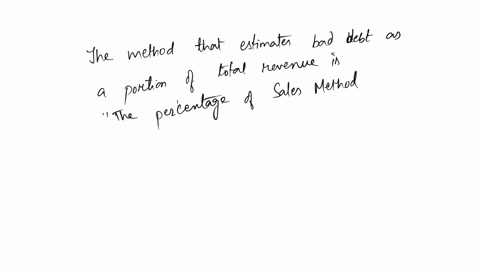 The method that estimates bad debt as
a portion of total revenue is
"The percentage of Sales Method